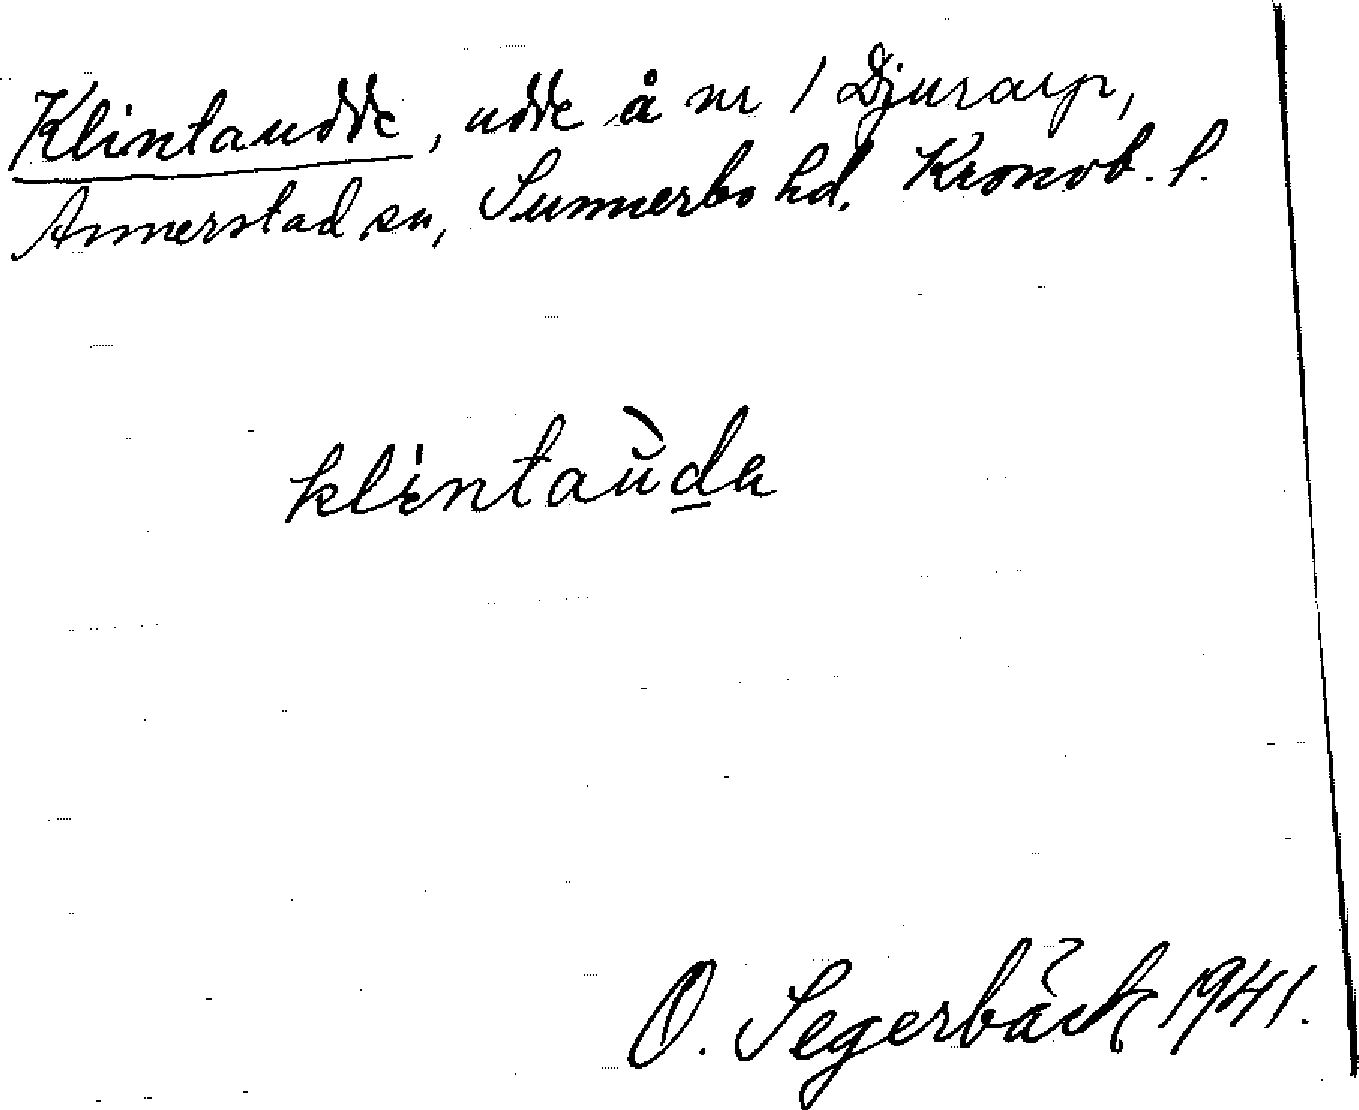 Klintaudde, udde å nr 1 Djurarp,
Annerstad sn, Sunnerbo hd. Kronob. l.
klintaùda
O. Segerbäck 1941.